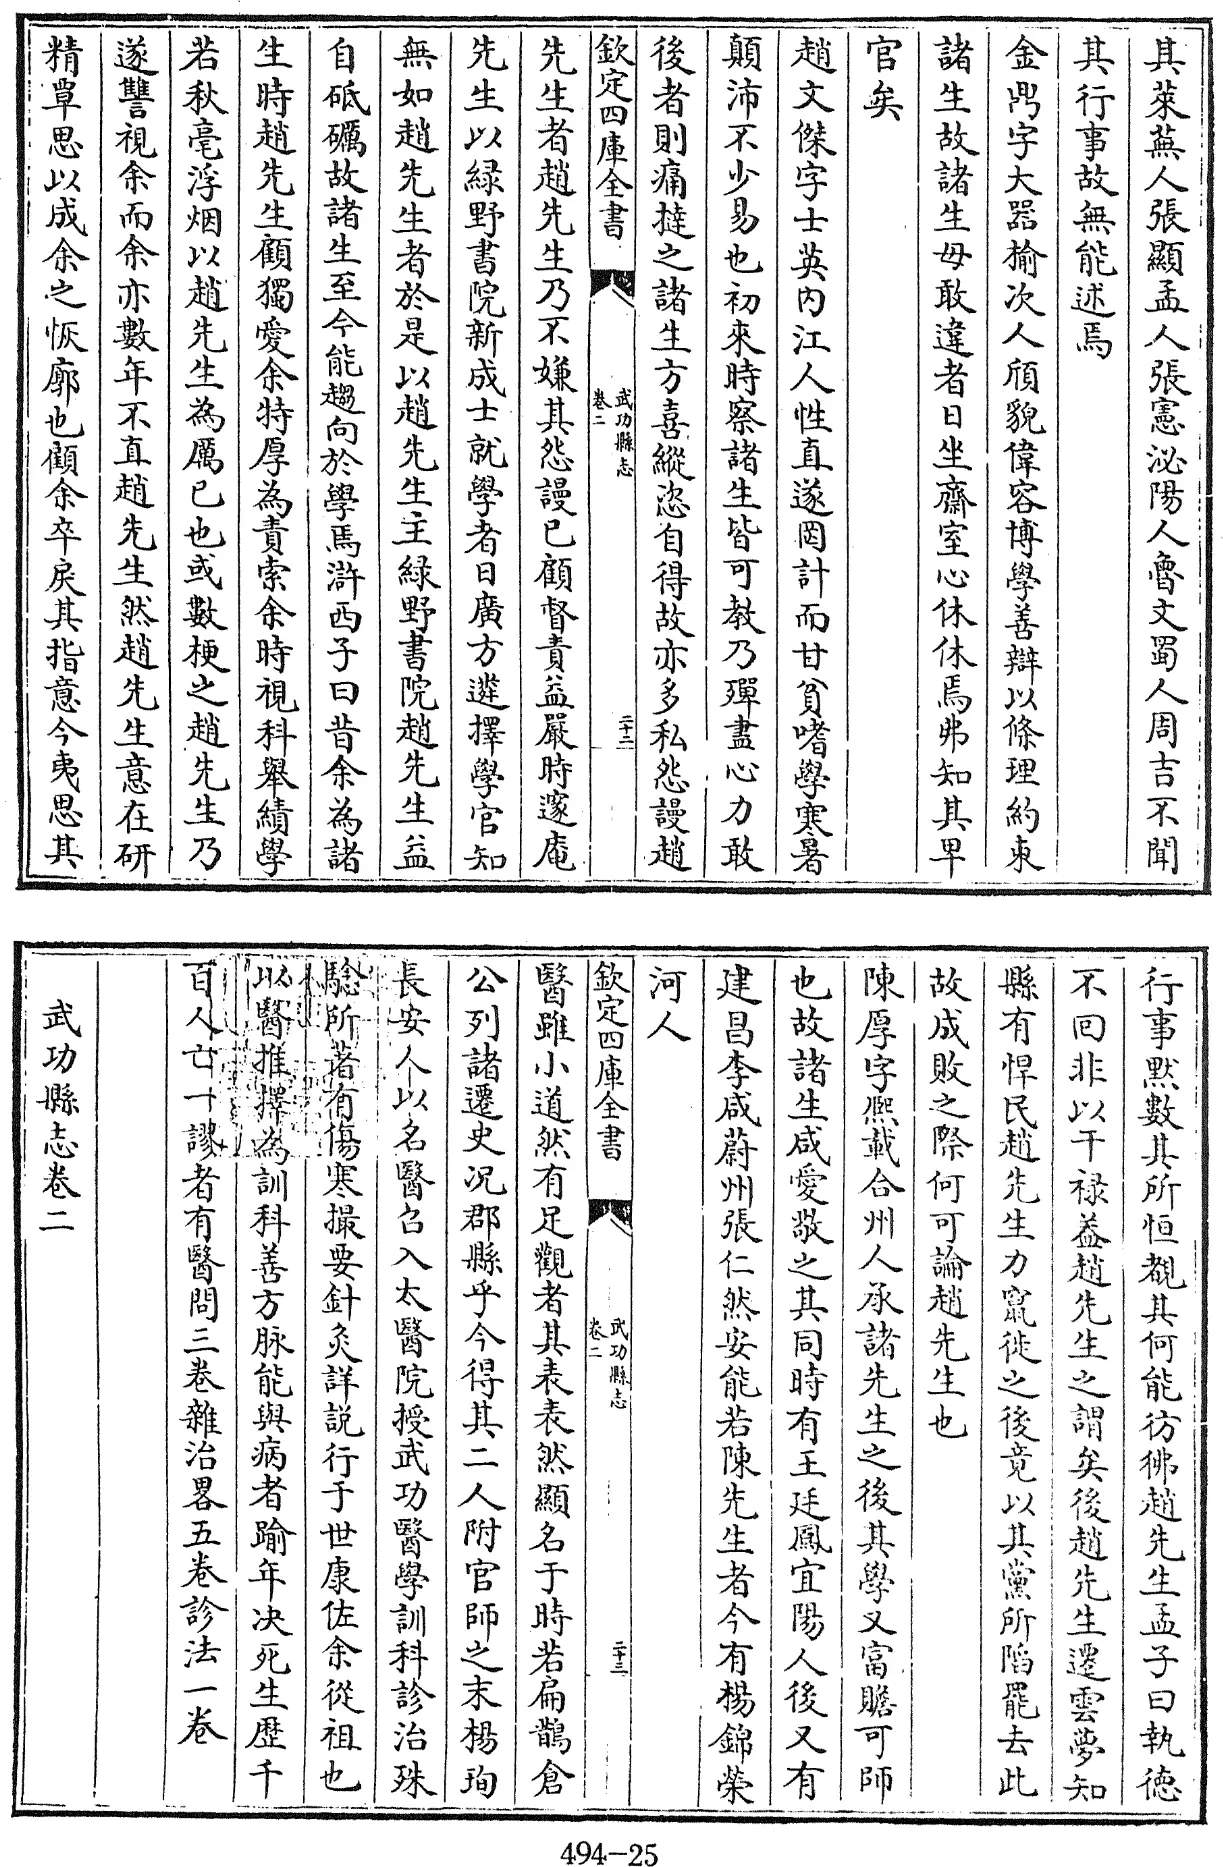 其萊蕪人張顯孟人張憲泌陽人魯文蜀人周吉不聞
其行事故無能述焉
金鼎字大器榆次人頎貌偉容博學善辯以條理約束
諸生故諸生毋敢違者日坐齋室心休休焉弗知其卑
官矣
趙文傑字士英内江人性直遂罔計而甘貧嗜學寒暑
顛沛不少易也初來時察諸生皆可教乃殫盡心力敢
後者則痛撻之諸生方喜縱恣自得故亦多私怨謾趙
欽定四庫全書
武功縣志
卷二
二十二
先生者趙先生乃不嫌其怨謾已顧督責益嚴時邃庵
先生以緑野書院新成士就學者日廣方遴擇學官知
無如趙先生者於是以趙先生主緑野書院趙先生益
自砥礪故諸生至今能趨向於學焉滸西子曰昔余為諸
生時趙先生顧獨愛余特厚為責索余時視科舉績學
若秋毫浮烟以趙先生為厲已也或數梗之趙先生乃
遂讐視余而余亦數年不直趙先生然趙先生意在研
精覃思以成余之恢廓也顧余卒戾其指意今夷思其
行事黙數其所恒覩其何能彷彿趙先生孟子曰執德
不回非以干禄益趙先生之謂矣後趙先生遷雲夢知
縣有悍民趙先生力竄徙之後竟以其黨所陷罷去此
故成敗之際何可論趙先生也
陳厚字熈載合州人承諸先生之後其學又富贍可師
也故諸生咸愛敬之其同時有王廷鳳宜陽人後又有
建昌李咸蔚州張仁然安能若陳先生者今有楊錦榮
河人
欽定四庫全書
武功縣志
卷二
二十三
醫雖小道然有足觀者其表表然顯名于時若扁鵲倉
公列諸遷史况郡縣乎今得其二人附官師之末楊珣
長安人以名醫召入太醫院授武功醫學訓科診治殊
驗所著有傷寒撮要針灸詳説行于世康佐余從祖也
以醫推擇為訓科善方脉能與病者踰年决死生歷千
百人亡一謬者有醫問三卷雜治畧五卷診法一卷
武功縣志卷二
494-25